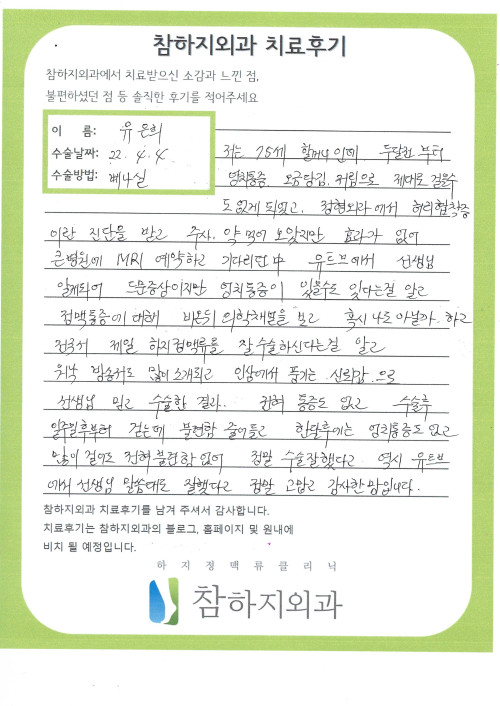 참하지외과 치료후기
참하지외과에서 치료받으신 소감과 느낀 점,
불편하셨던 점 등 솔직한 후기를 적어주세요
이 름: 유은희
수술날짜: 22. 4. 4
수술방법: 베나실
저는 75세 할머니인데. 두달전부터
엉치통증. 오금당김. 저림으로 제대로 걸을수
도 없게 되었고. 정형외과에서 허리협착증
이란 진단을 받고 주사. 약 먹어 보았지만 효과가 없어
큰병원에 MRI 예약하고 기다리던中 유트브에서 선생님
알게되어 드문증상이지만 엉치통증이 있을수도 있다는걸 알고
정맥통증에 대해 비온뒤 의학채널을 보고 혹시 나도 아닐까. 하고
전국서 제일 하지정맥류를 잘 수술하신다는걸 알고
워낙 방송서도 많이 소개되고 인상에서 풍기는 신뢰감.으로
선생님 믿고 수술한 결과. 전혀 통증도 없고 수술후
일주일후부터 걷는데 불편함 줄어들고 한달후에는 엉치통증도 없고
많이 걸어도 전혀 불편함 없어 정말 수술잘했다고 역시 유트브
에서 선생님 말씀대로 잘했다고 정말 고맙고 감사한 맘입니다.
참하지외과 치료후기를 남겨 주셔서 감사합니다.
치료후기는 참하지외과의 블로그, 홈페이지 및 원내에
비치 될 예정입니다.
하지정맥류클리닉
참하지외과